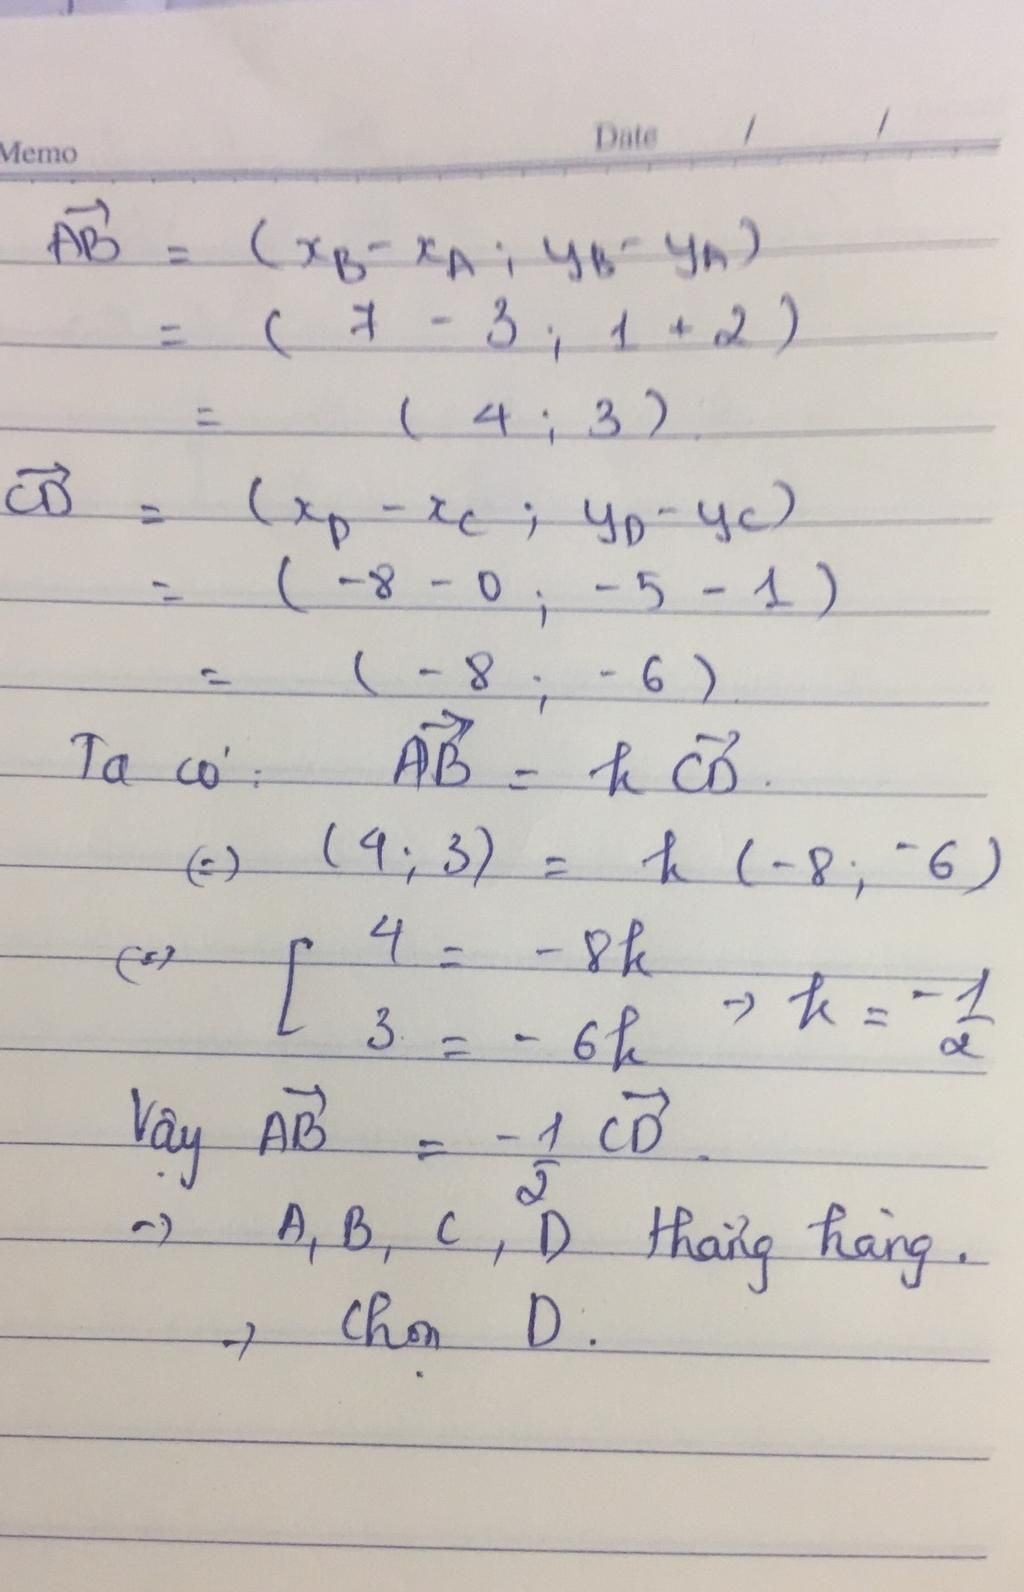 Memo Date / /
AB→ = (x_B - x_A ; y_B - y_A)
= ( 7 - 3 ; 1 + 2 )
= ( 4 ; 3 ).
CD→ = (x_D - x_C ; y_D - y_C)
= ( -8 - 0 ; -5 - 1 )
= ( -8 ; -6 ).
Ta có: AB→ = k CD→.
(=) (4; 3) = k (-8; -6)
(=) [ 4 = -8k
3 = -6k → k = -1/2
Vậy AB→ = -1/2 CD→.
→ A, B, C, D thẳng hàng.
→ Chọn D.